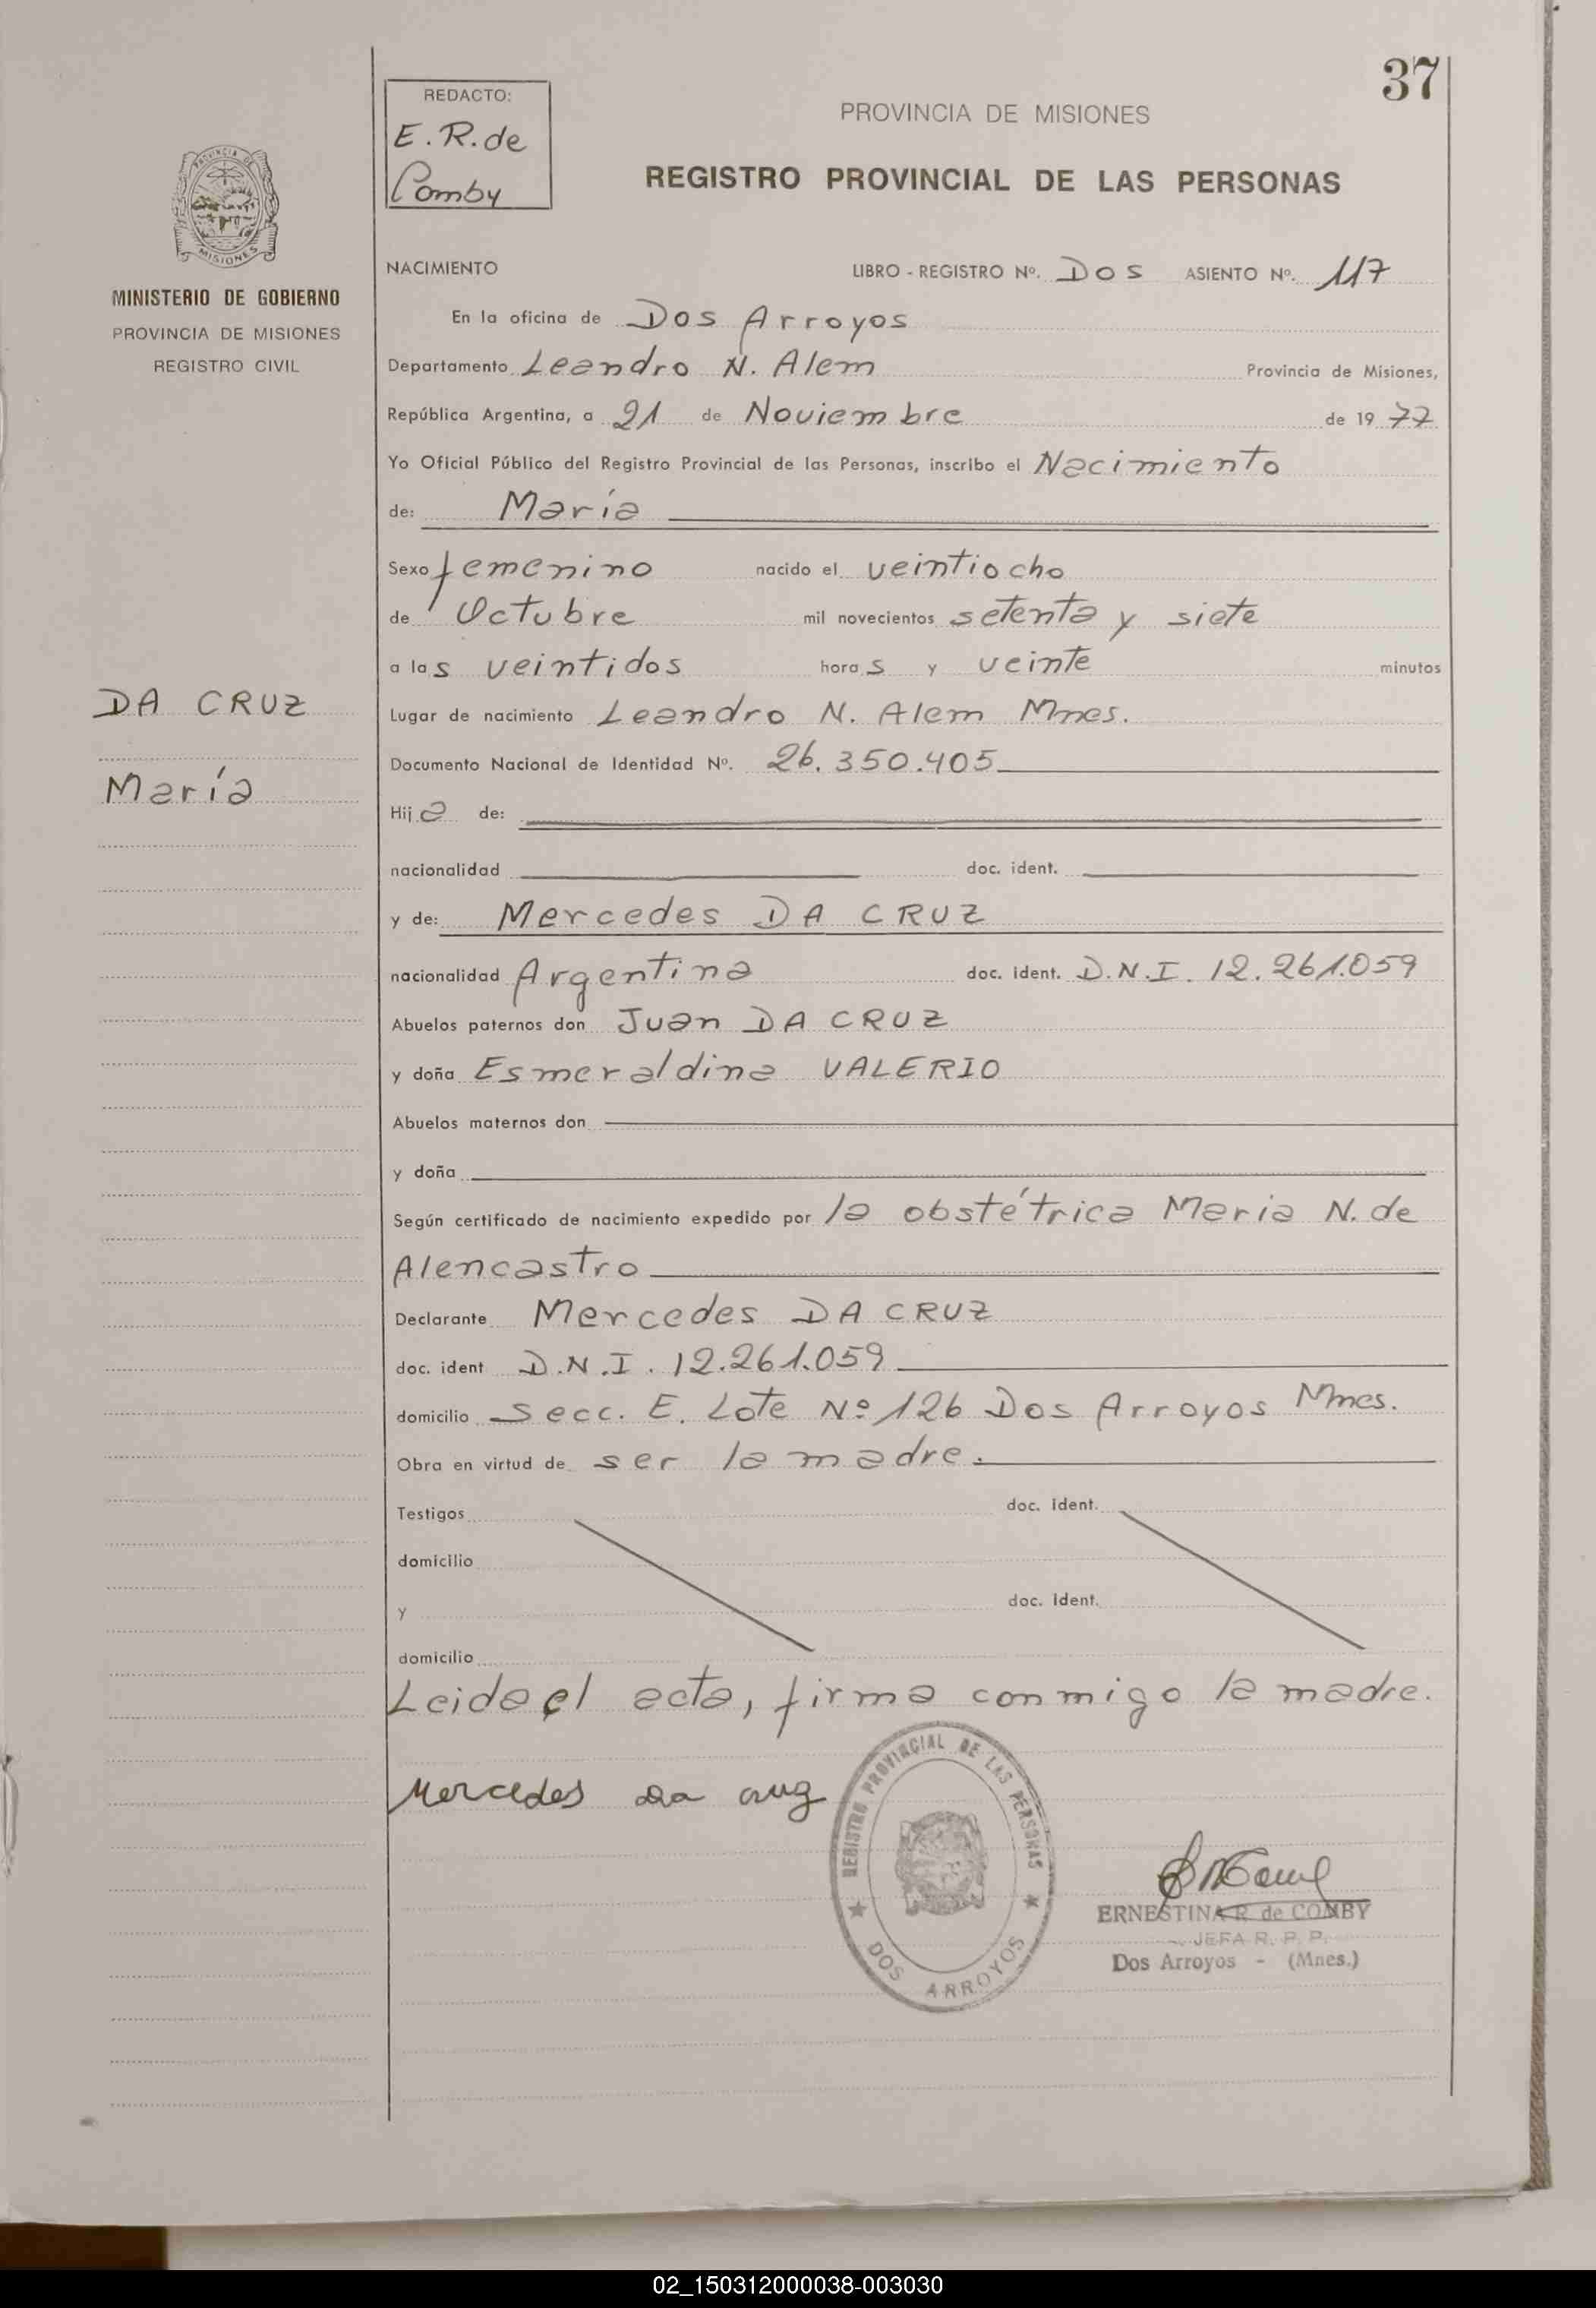 37
REDACTO:
E. R. de
Comby
PROVINCIA DE MISIONES
REGISTRO PROVINCIAL DE LAS PERSONAS
PROVINCIA DE
MISIONES
MINISTERIO DE GOBIERNO
PROVINCIA DE MISIONES
REGISTRO CIVIL
DA CRUZ
María
NACIMIENTO LIBRO - REGISTRO Nº. DOS ASIENTO Nº. 117
En la oficina de Dos Arroyos
Departamento Leandro N. Alem Provincia de Misiones,
República Argentina, a 21 de Noviembre de 19 77
Yo Oficial Público del Registro Provincial de las Personas, inscribo el Nacimiento
de: María
Sexo femenino nacido el veintiocho
de Octubre mil novecientos setenta y siete
a las veintidos horas y veinte minutos
Lugar de nacimiento Leandro N. Alem Mnes.
Documento Nacional de Identidad Nº. 26.350.405
Hija de:
nacionalidad doc. ident.
y de: Mercedes DA CRUZ
nacionalidad Argentina doc. ident. D.N.I. 12.261.059
Abuelos paternos don Juan DA CRUZ
y doña Esmeraldina VALERIO
Abuelos maternos don
y doña
Según certificado de nacimiento expedido por la obstétrica Maria N. de
Alencastro
Declarante Mercedes DA CRUZ
doc. ident D.N.I. 12.261.059
domicilio secc. E. Lote Nº 126 Dos Arroyos Mnes.
Obra en virtud de ser la madre.
Testigos doc. ident.
domicilio
y doc. ident.
domicilio
Leida el acta, firma conmigo la madre.
Mercedes Da cruz
REGISTRO PROVINCIAL DE LAS PERSONAS
DOS ARROYOS
ERNESTINA R. de COMBY
JEFA R. P. P.
Dos Arroyos - (Mnes.)
02_150312000038-003030